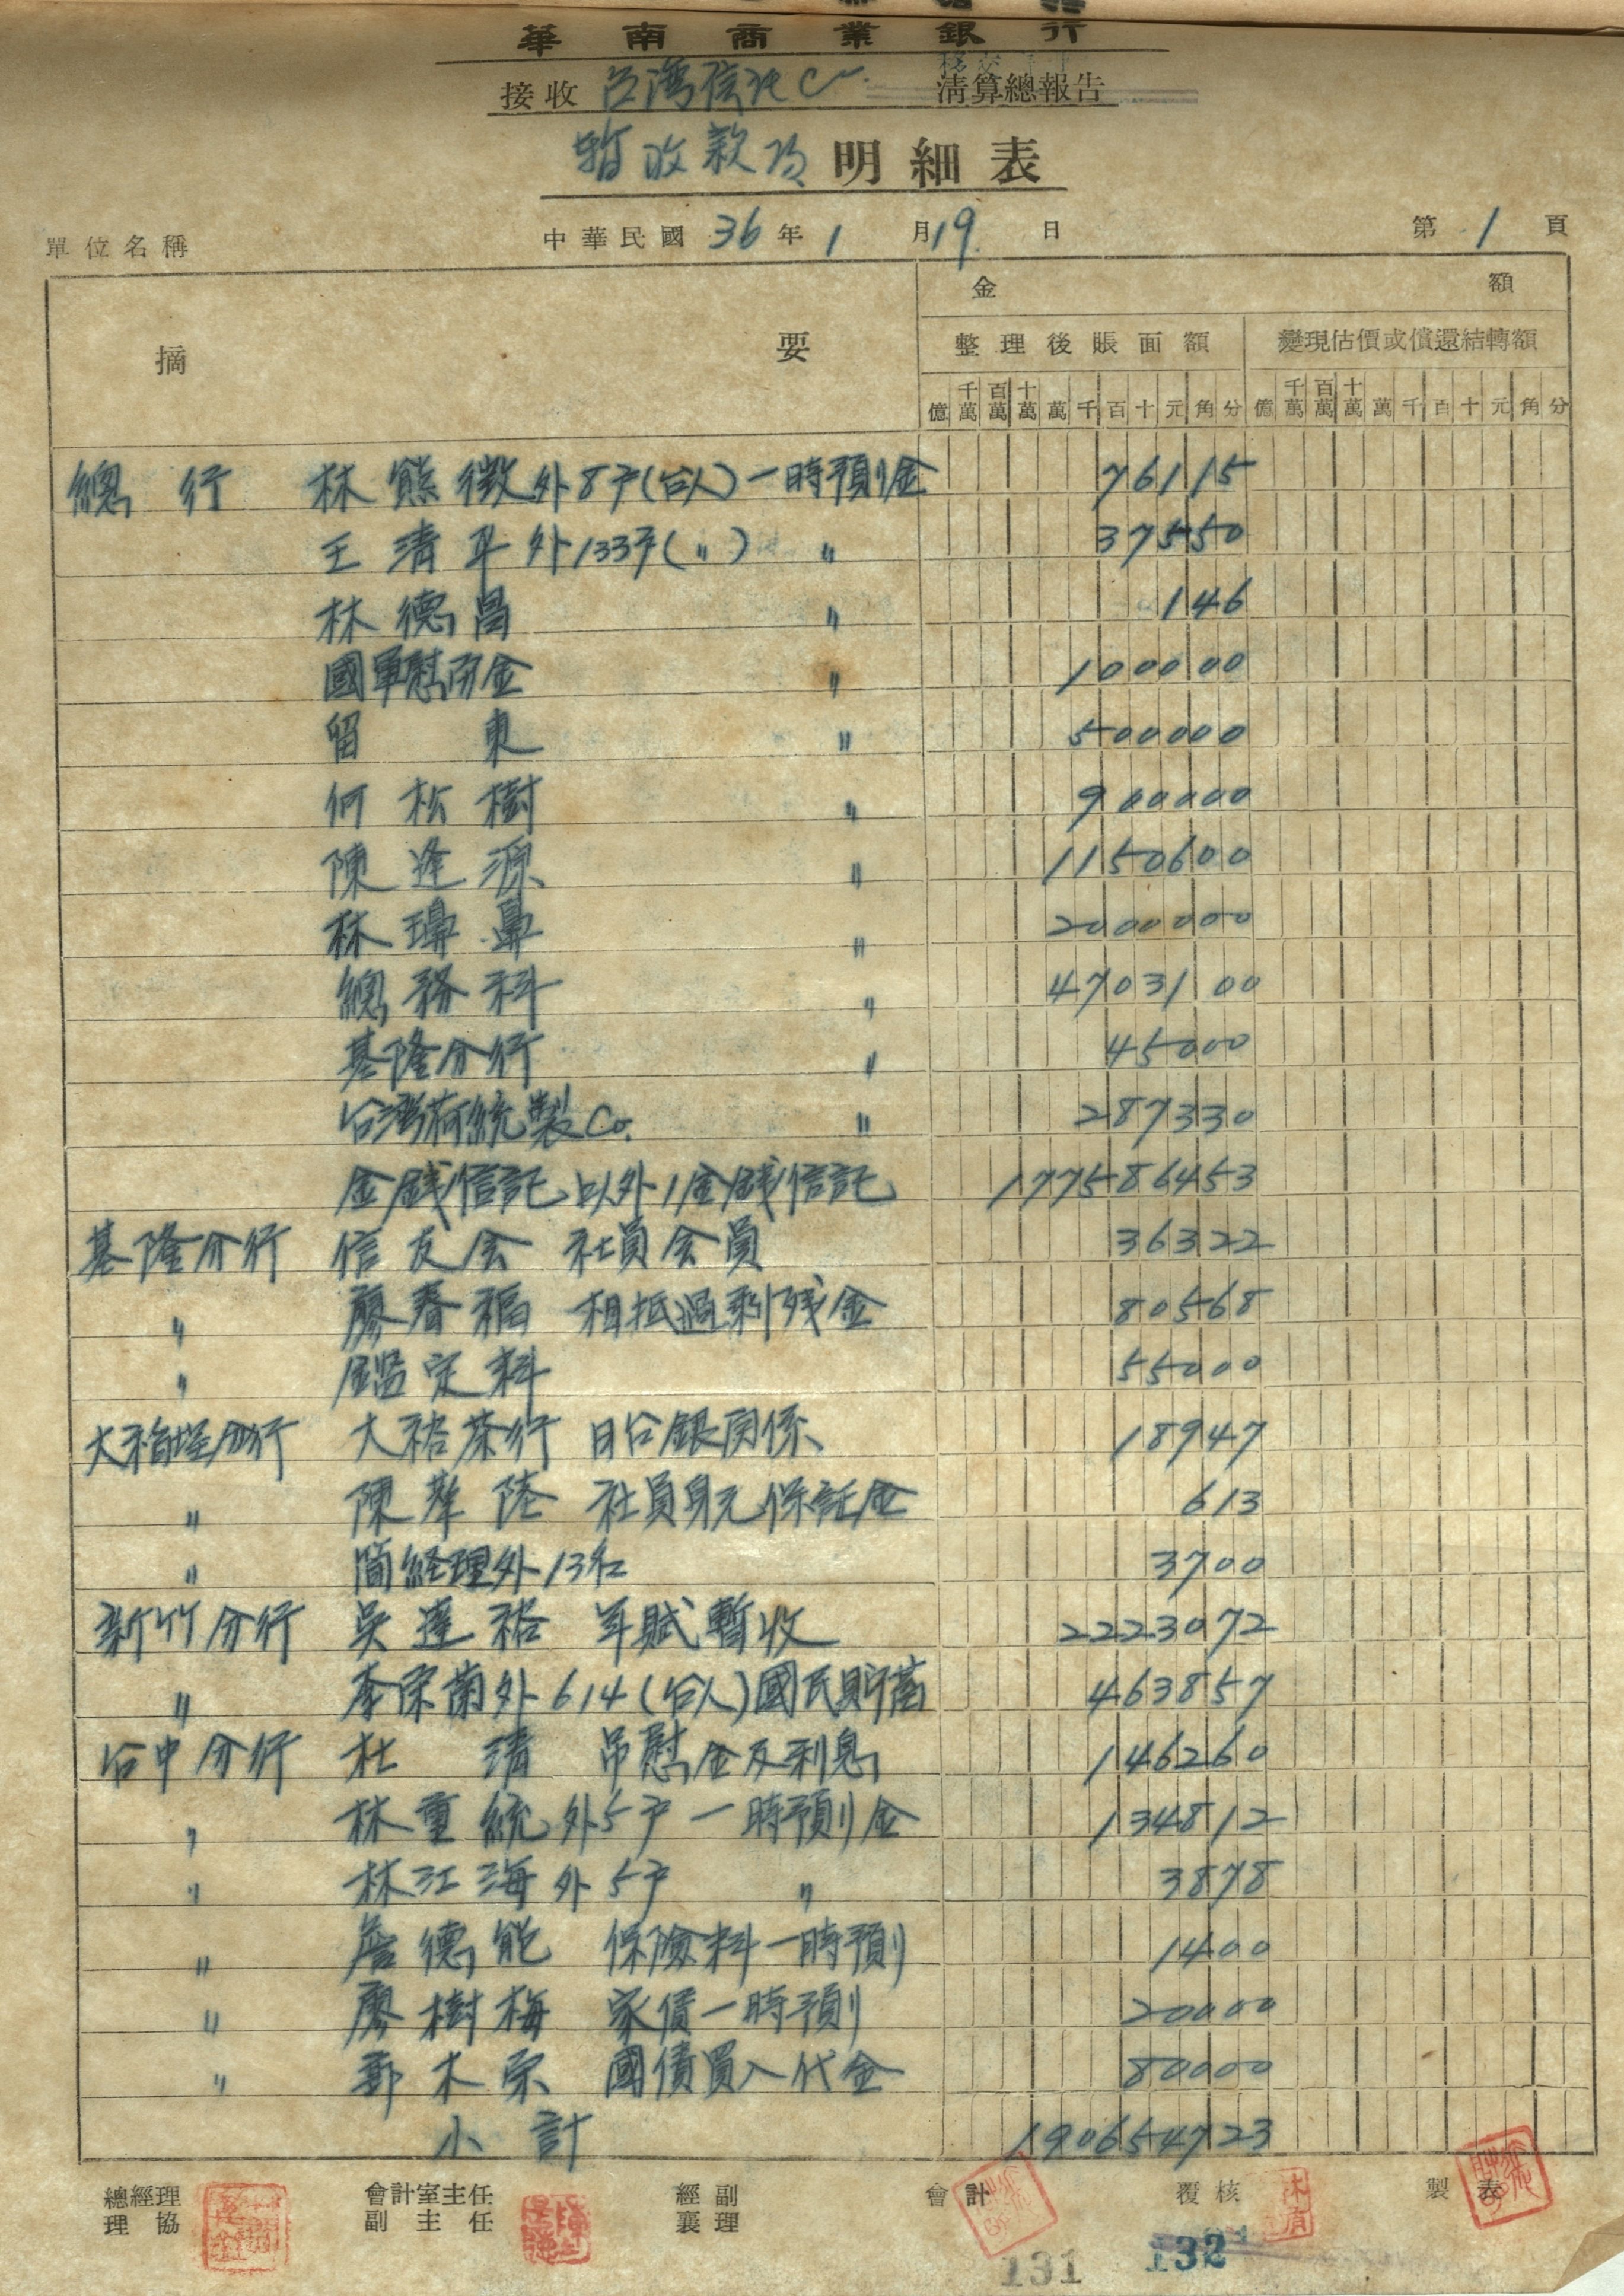 華南商業銀行
接收 台灣信託Co. 清算總報告
暫收款項 明細表
單位名稱 中華民國 36 年 1 月 19 日 第 1 頁
摘要 金額
整理後賬面額 變現估價或償還結轉額
億 千萬 百萬 十萬 萬 千 百 十 元 角 分 億 千萬 百萬 十萬 萬 千 百 十 元 角 分
總行 林熊徵外8戶(台人)一時預リ金 76115
王清平外133戶(〃) 〃 37550
林德昌 〃 146
國軍慰問金 〃 100000
留東 〃 500000
何松樹 〃 900000
陳逢源 〃 1150600
林鼻 〃 2000000
總務科 〃 4703100
基隆分行 〃 45000
台灣荷統製Co. 〃 287330
金錢信託以外ノ金錢信託 177586453
基隆分行 信友会 社員会員 36322
〃 廖春福 相抵過剩残金 80568
〃 鑑定料 55000
大稻埕分行 大裕茶行 日台銀関係 18947
〃 陳 社員身元保証金 613
〃 簡経理外13名 3700
新竹分行 吳達裕 年賦暫收 2223072
〃 李宗蘭外614(台人)國民貯蓄 463857
台中分行 杜清 吊慰金及利息 146260
〃 林重統外5戶 一時預リ金 134812
〃 林江海外5戶 〃 3878
〃 詹德能 保險料一時預リ 1400
〃 廖樹梅 家債一時預リ 20000
〃 鄭木宗 國債買入代金 80000
小計 190654723
總經理 會計室主任 經副 會計 覆核 製表
理協 副主任 襄理
131 132